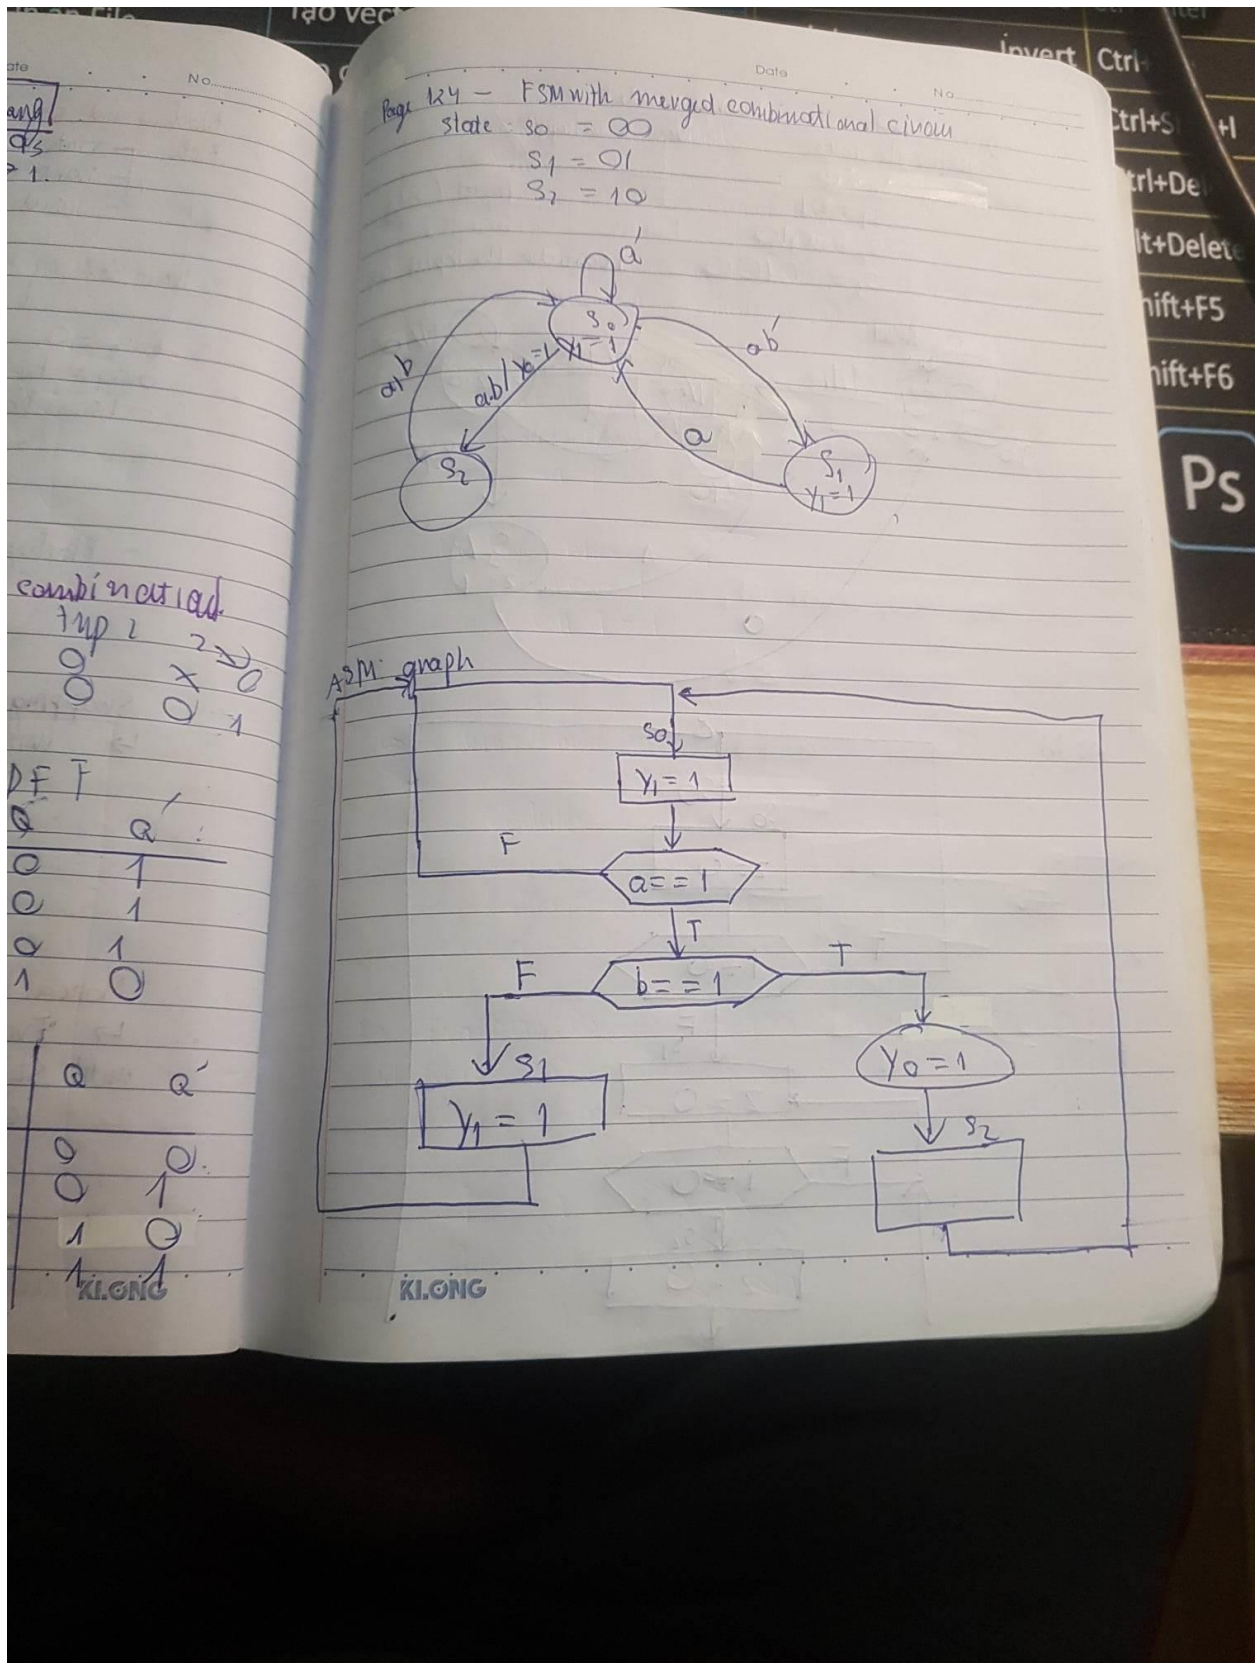 Tạo Vec
Invert
Ctrl+
Ctrl+S
+I
trl+De
lt+Delete
hift+F5
hift+F6
Ps
ate
No
ang
> 1.
combinatiad
typ 2
0 X 0
0 0 1
D F F
Q Q'
0 1
0 1
0 1
1 0
Q Q'
0 0
0 1
1 0
1 1
KLONG
Date
No
Page 124 - FSM with merged combinational circui
State: S0 = 00
S1 = 01
S2 = 10
a'
S0
Y1 = 1
ab'
a,b
ab/Y0=1
a
S2
S1
Y1=1
ASM graph
S0
Y1 = 1
F
a==1
T
F
b==1
T
S1
Y0=1
Y1 = 1
S2
KLONG